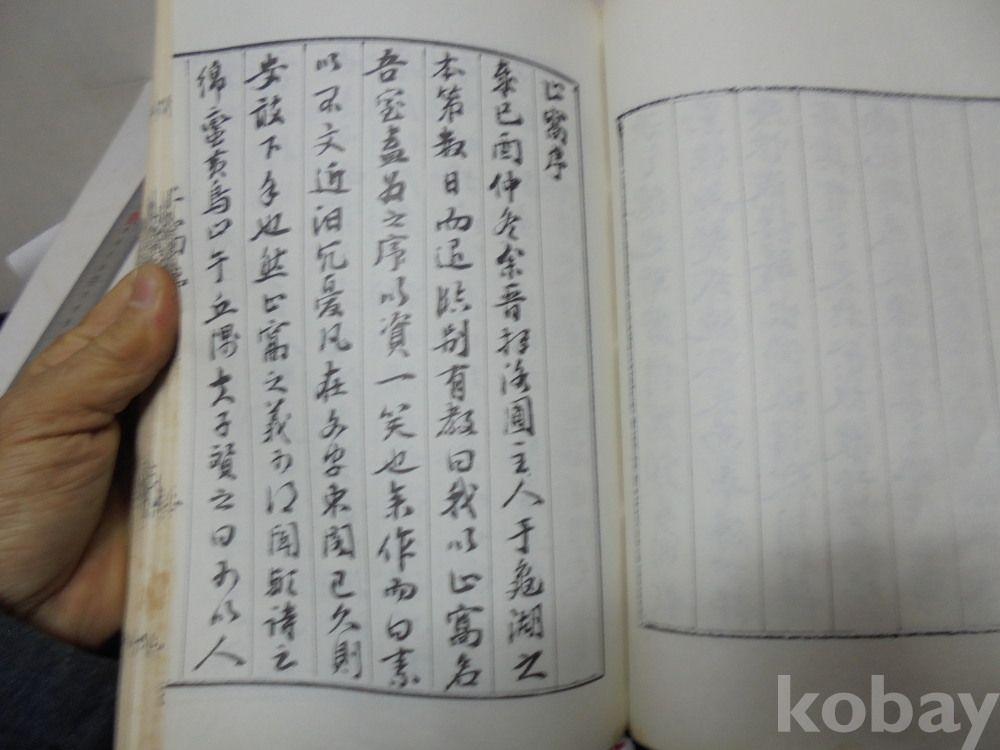 止窩序
歲己酉仲冬余晋拜洛圃主人于龜湖之
本第數日而退臨別有敎曰我以止窩名
吾室盍爲之序以資一笑也余作而曰素
以不文近汩冗憂凡在文字束閣已久則
安敢下手也然止窩之義可得聞歟詩云
綿蠻黃鳥止于丘隅夫子贊之曰可以人
kobay